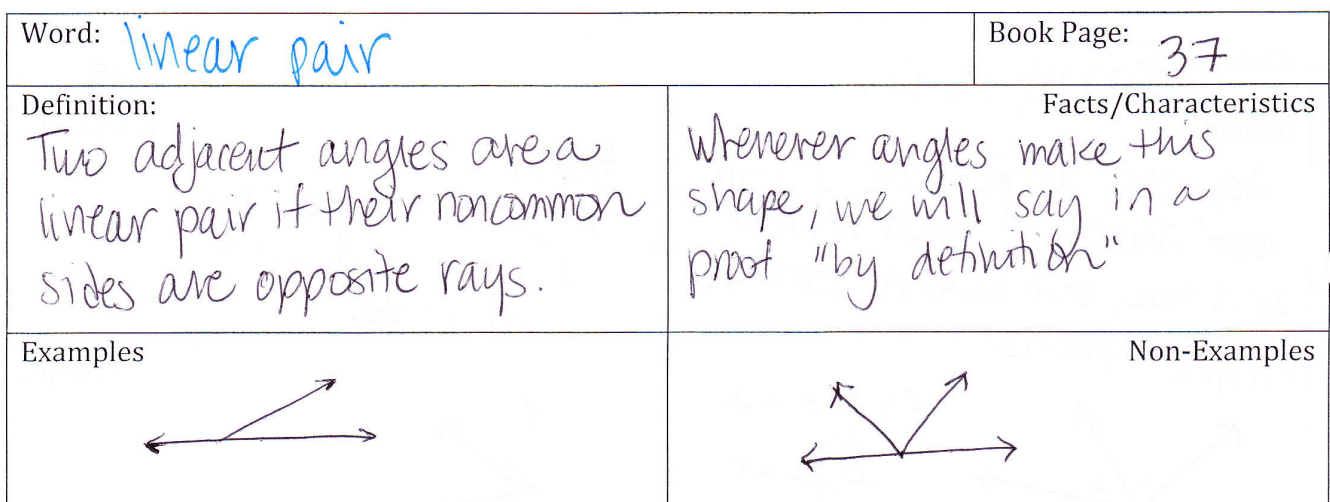 Word: linear pair
Book Page: 37
Definition:
Two adjacent angles are a
linear pair if their noncommon
sides are opposite rays.
Facts/Characteristics
Whenever angles make this
shape, we will say in a
proof "by definition"
Examples
Non-Examples